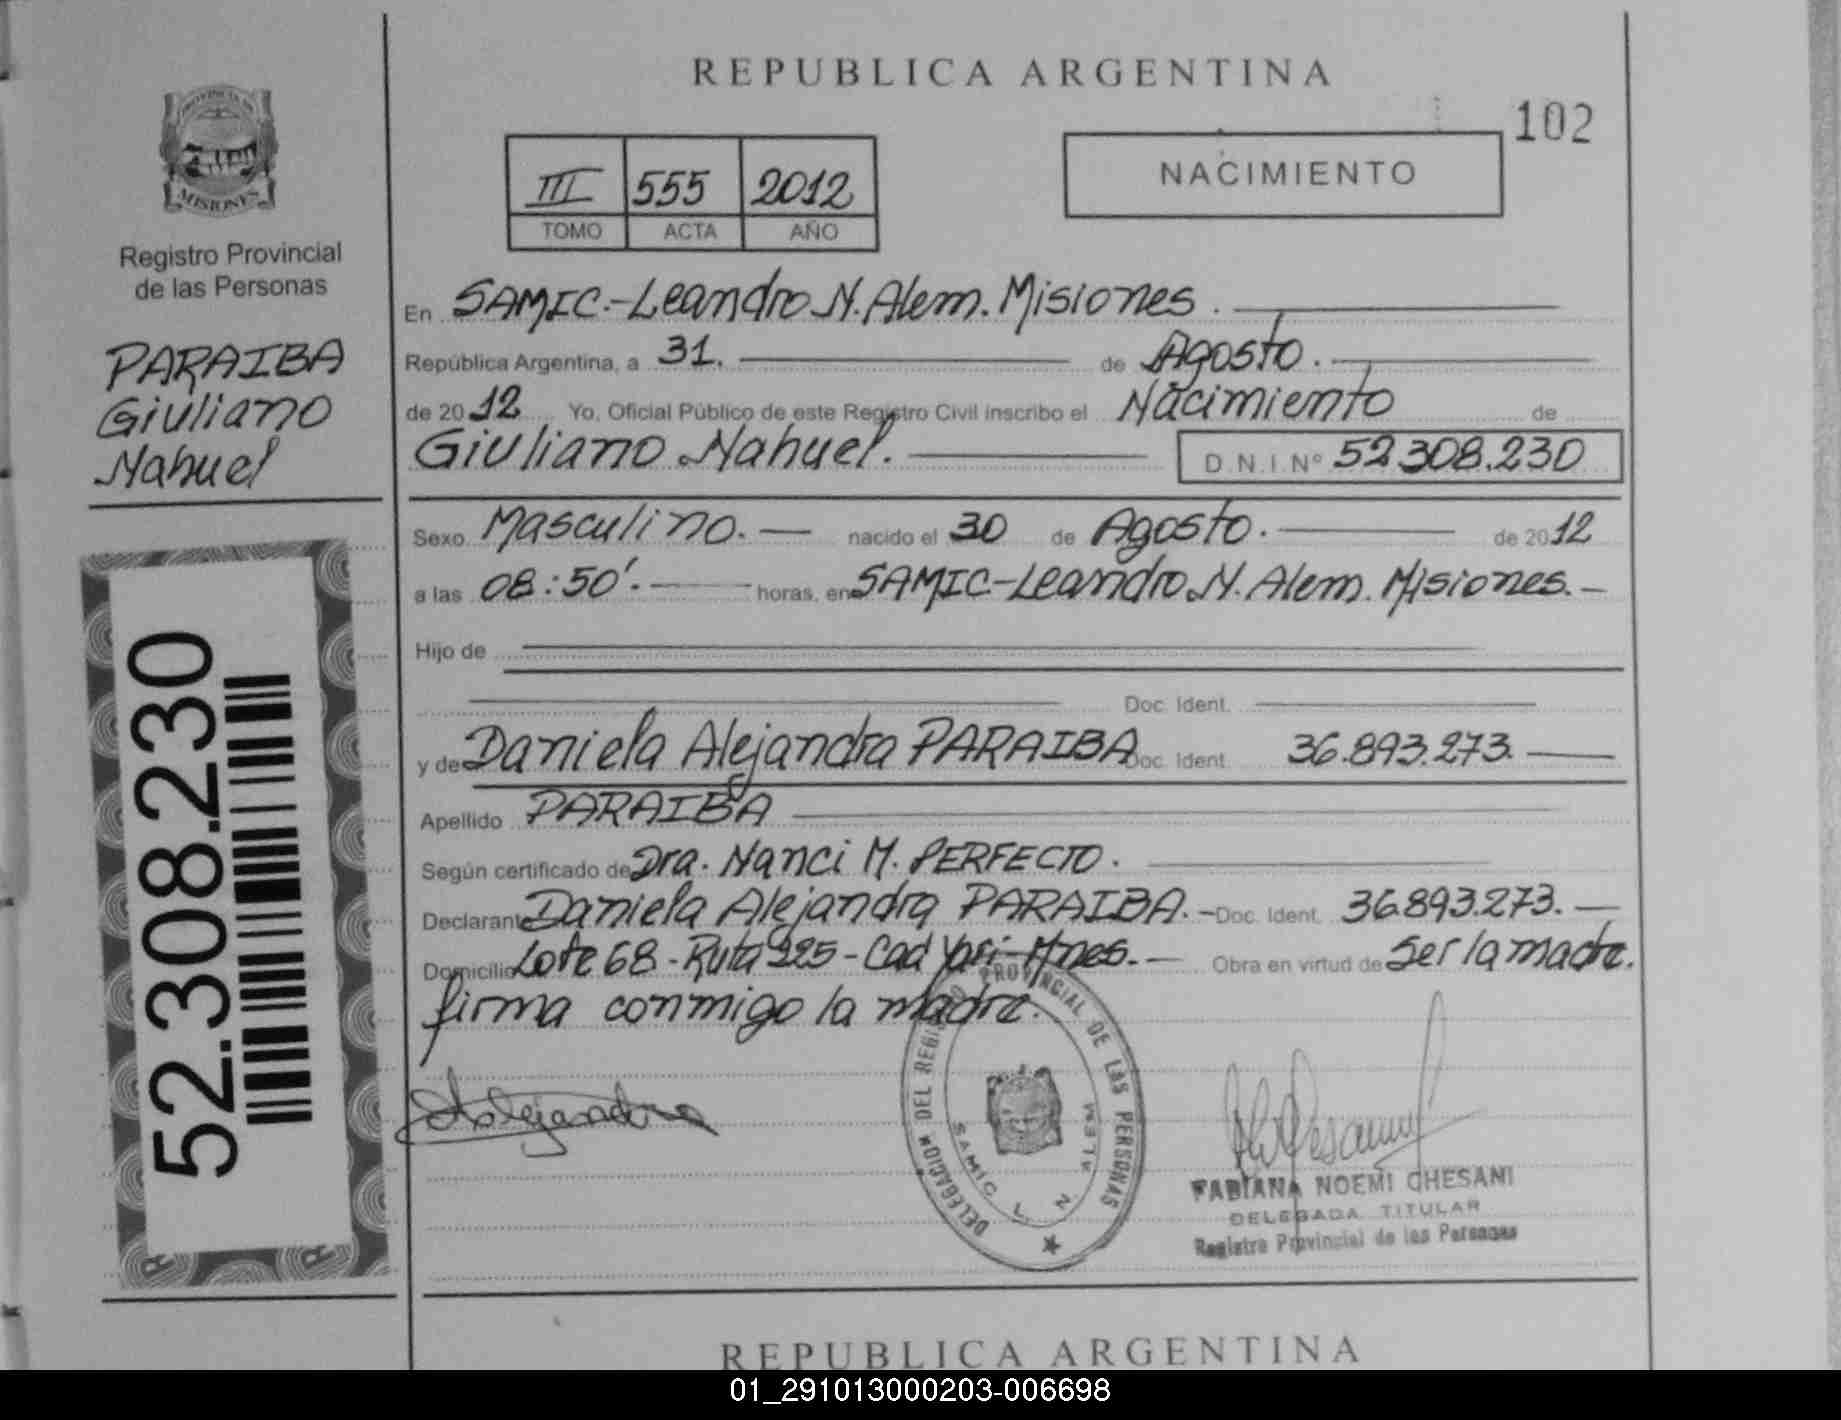 REPUBLICA ARGENTINA
102
III 555 2012
TOMO ACTA AÑO
NACIMIENTO
PROVINCIA DE
MISIONES
Registro Provincial
de las Personas
PARAIBA
Giuliano
Nahuel
52.308.230
En SAMIC.-Leandro N. Alem. Misiones.
República Argentina, a 31. de Agosto.
de 2012 Yo, Oficial Público de este Registro Civil inscribo el Nacimiento de
Giuliano Nahuel. D.N.I. Nº 52.308.230
Sexo Masculino. nacido el 30 de Agosto. de 2012
a las 08:50'. horas, en SAMIC-Leandro N. Alem. Misiones.-
Hijo de
Doc. Ident.
y de Daniela Alejandra PARAIBA Doc. Ident. 36.893.273.
Apellido PARAIBA
Según certificado de Dra. Nanci M. PERFECTO.
Declarante Daniela Alejandra PARAIBA.- Doc. Ident. 36.893.273.-
Domicilio Lote 68 - Ruta 225 - Cad Yari-Mnes.- Obra en virtud de Ser la madre.
firma conmigo la madre.
Alejandra
DELEGACION DEL REGISTRO PROVINCIAL DE LAS PERSONAS
SAMIC L. N. ALEM
FABIANA NOEMI CHESANI
DELEGADA TITULAR
Registro Provincial de las Personas
REPUBLICA ARGENTINA
01_291013000203-006698